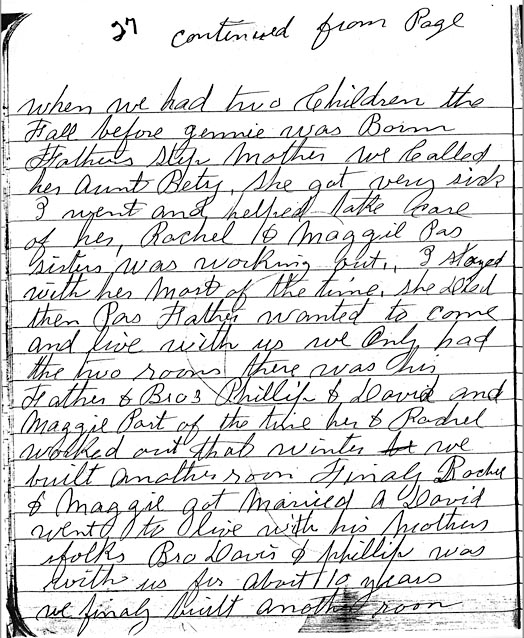 27 continued from Page
when we had two Children the
Fall before gennie was Born
Fathers step Mother we Called
her Aunt Bety, she got very sick
I went and helped take care
of her, Rachel & Maggie Pas
sisters was working out, I stayed
with her most of the time, she Died
then Pas Father wanted to come
and live with us we Only had
the two rooms there was his
Father & Bros Phillip & David and
Maggie Part of the time her & Rachel
worked out that winter we
built another room Finaly Rachel
& Maggie got Maried & David
went to live with his Mothers
folks Bro Davis & phillip was
with us for about 10 years
we finaly built another room